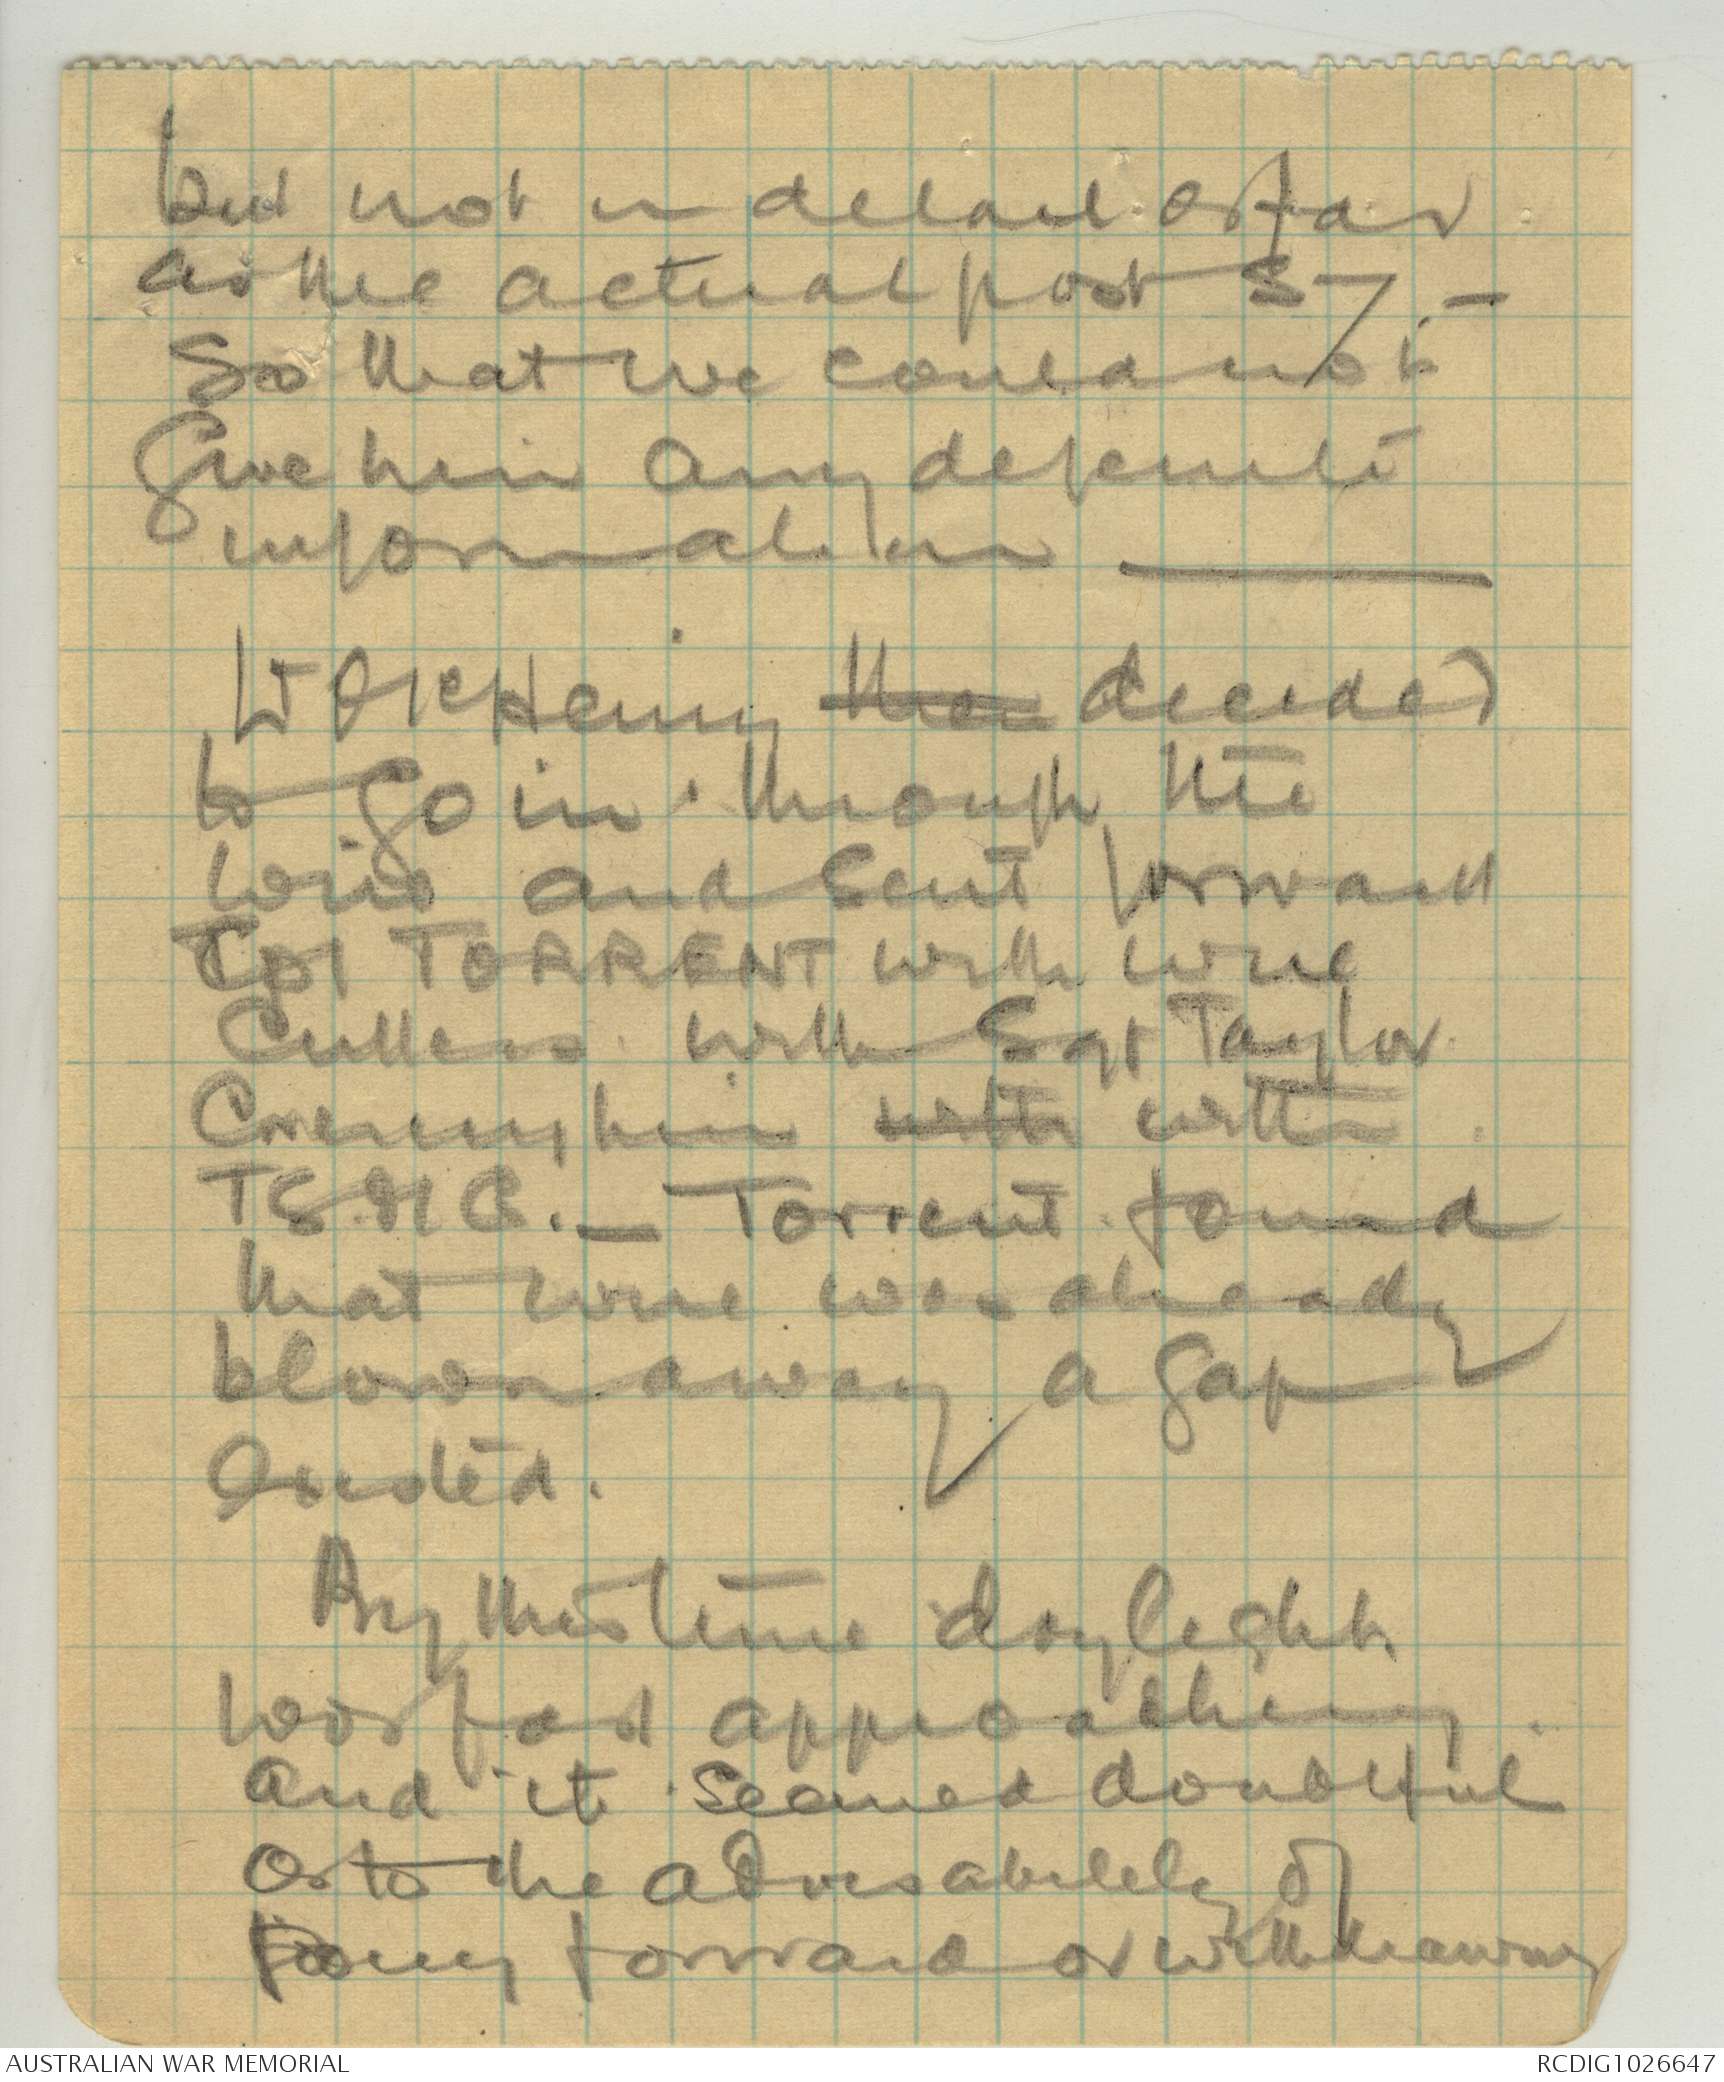 but not in detail as far
as the actual post S7. —
So that we could not
Give him any definite
information ———
Lt Henry then decided
to go in through the
wire and sent forward
Cpl TORRENT with wire
Cutters. with Sgt Taylor
Covering him with with
T.S.M.G. — Torrent found
that wire was already
blown away a gap
Existed.
By this time daylight
was fast approaching
and it seemed doubtful
as to the advisability of
going forward or withdrawing
AUSTRALIAN WAR MEMORIAL
RCDIG1026647